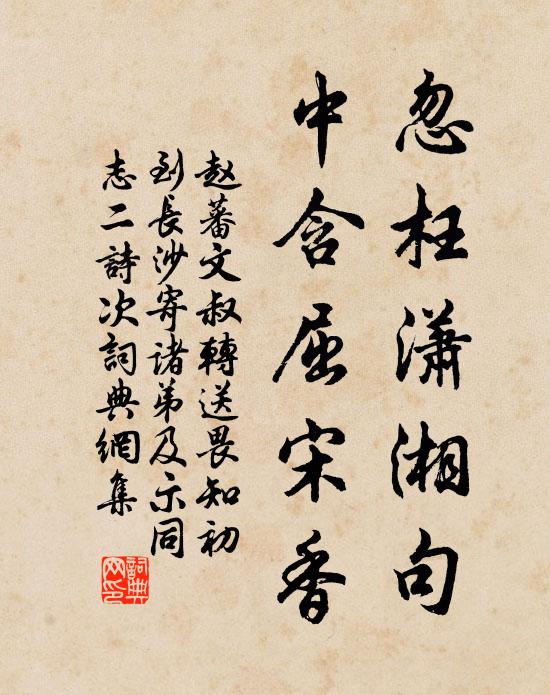 忽枉潇湘句
中含屈宋香
赵蕃文叔轉送畏知初
到長沙寄诸弟及示同
志二詩次詞典網集
詞典网印